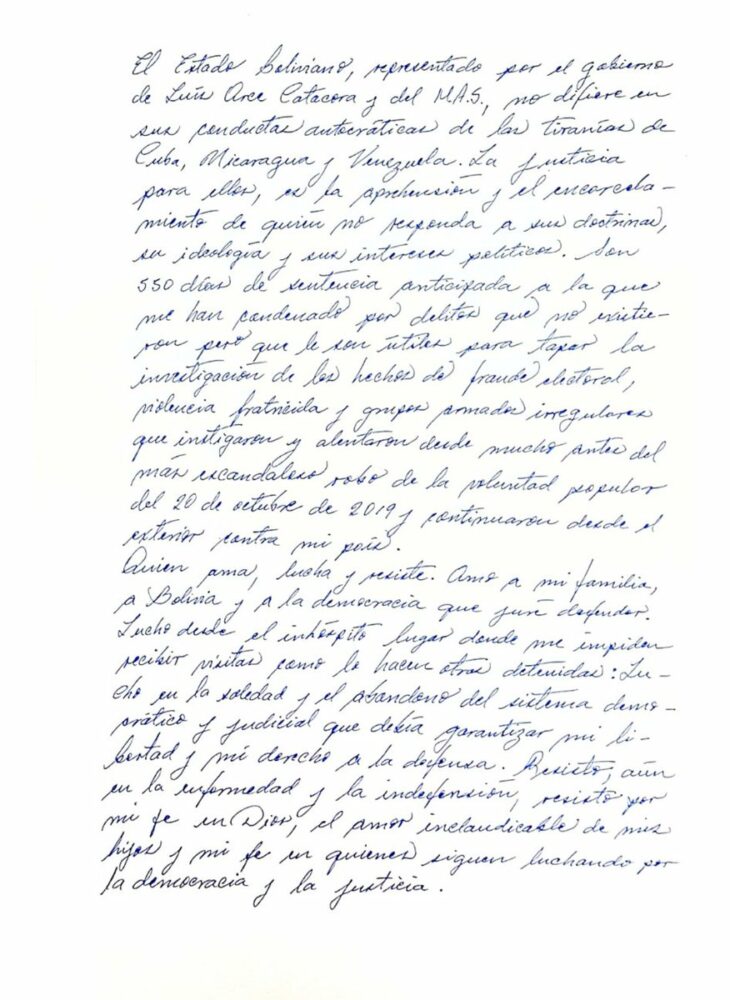 El Estado boliviano, representado por el gobierno
de Luis Arce Catacora y del M.A.S., no difiere en
sus conductas autocráticas de las tiranías de
Cuba, Nicaragua y Venezuela. La justicia
para ellos, es la aprehensión y el encarcela-
miento de quién no responda a sus doctrinas,
su ideología y sus intereses políticos. Son
550 días de sentencia anticipada a la que
me han condenado por delitos que no existie-
ron pero que le son útiles para tapar la
investigación de los hechos de fraude electoral,
violencia fratricida y grupos armados irregulares
que instigaron y alentaron desde mucho antes del
más escandaloso robo de la voluntad popular
del 20 de octubre de 2019 y continuaron desde el
exterior contra mi país.
Quien ama, lucha y resiste. Amo a mi familia,
a Bolivia y a la democracia que juré defender.
Lucho desde el inhóspito lugar donde me impiden
recibir visitas como lo hacen otras detenidas: Lu-
cho en la soledad y el abandono del sistema demo-
crático y judicial que debía garantizar mi li-
bertad y mi derecho a la defensa. Resisto, aún
en la enfermedad y la indefensión, resisto por
mi fe en Dios, el amor inclaudicable de mis
hijos y mi fe en quienes siguen luchando por
la democracia y la justicia.